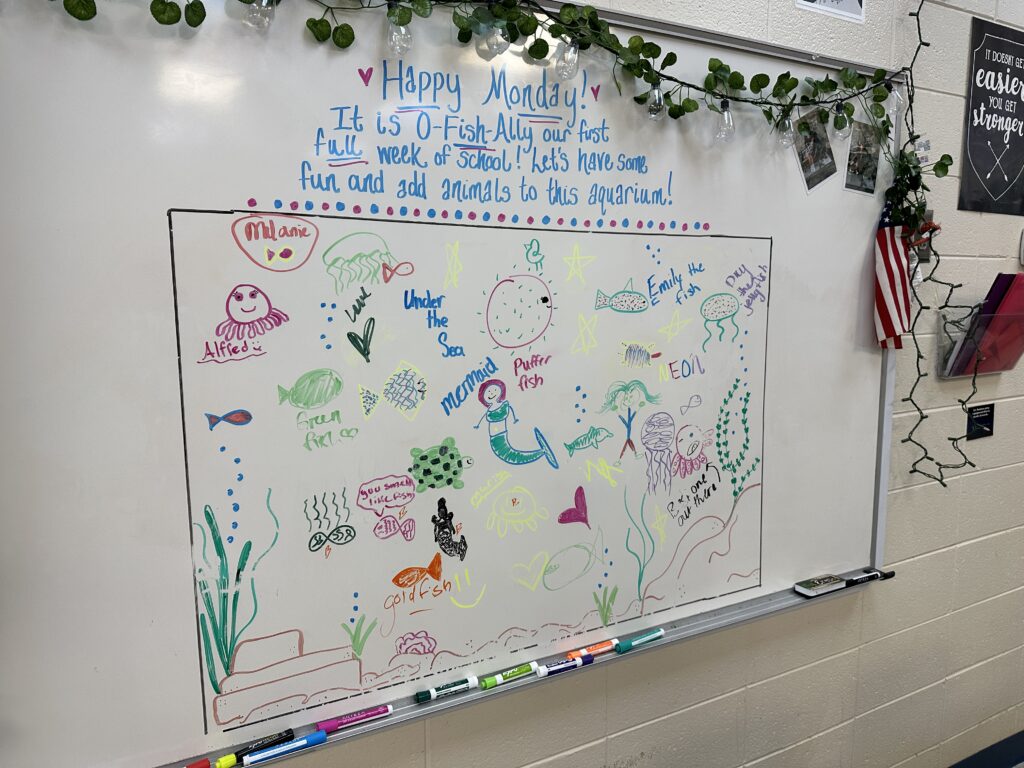 Happy Monday!
It is O-Fish-Ally our first
full week of school! Let's have some
fun and add animals to this aquarium!
IT DOESN'T GET
easier
YOU GET
stronger
Melanie
Under
the
Sea
Emily the
fish
the
Alfred
mermaid
Puffer
fish
NEON
Green
fish
you smell
like fish
goldfish
one
out there